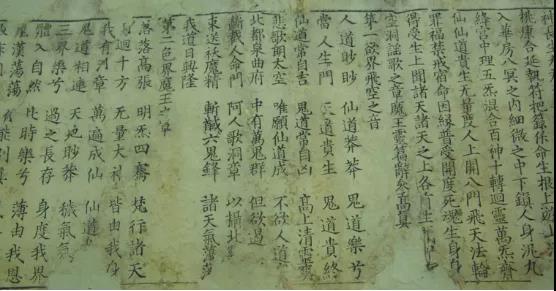 桃康合延執符把籙保命生根上遊上
入華房八冥之內細微之中下鎮人身泥丸
絳宮中理五炁混合百神十轉迴靈萬炁齊
仙仙道貴生无量度人上開八門飛天法輪
罪福禁戒宿命因緣普受開度死魂生身
得受生上聞諸天諸天之上各有生
空洞謠歌之章魔王靈篇辭參高真
第一欲界飛空之音
人道眇眇 仙道莽莽 鬼道樂兮
當人生門 仙道貴生 鬼道貴終
仙道常自吉 鬼道常自凶 高上清靈爽
悲歌朗太空 唯願仙道成 不欲人道
北都泉曲府 中有萬鬼群 但欲遏
斷截人命門 阿人歌洞章 以攝北
束送祅魔精 斬馘六鬼鋒 諸天氣蕩蕩
我道日興隆
第二色界魔王之章
落落高張 明炁四騫 梵行諸天
周迴十方 无量大神 皆由我身
我有洞章 萬遍成仙 仙道
鬼道相連 天地眇莽 穢氣氛
三界樂兮 過之長存 身度我界
體入自然 此時樂兮 薄由我恩
龍漢蕩蕩